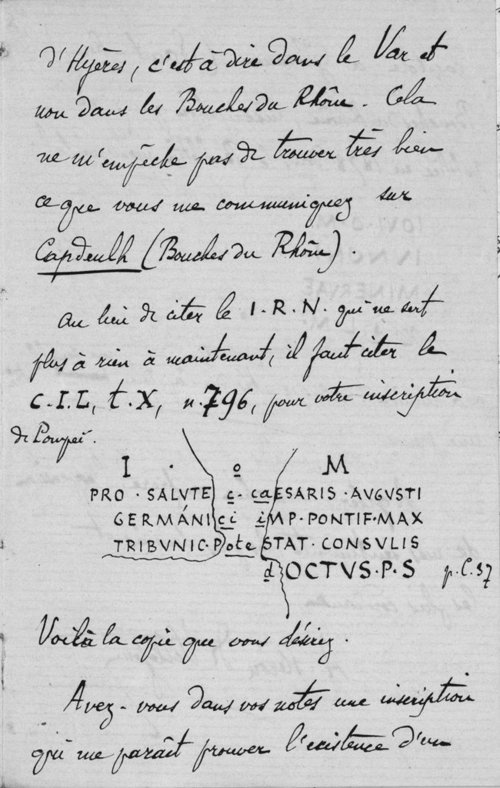 d'Hyères, c'est à dire dans le Var et
non dans les Bouches du Rhône. Cela
ne m'empêche pas de trouver très bien
ce que vous me communiquez sur
Capdeulh (Bouches du Rhône)
Au lieu de citer le I.R.N. qui ne sert
plus à rien à maintenant, il faut citer le
C.I.L, t.X, n. 796, pour votre inscription
de Pompéi.
I · o M
PRO · SALVTE c · caESARIS · AVGVSTI
GERMÁNIci iMP · PONTIF · MAX
TRIBVNIC · PoteSTAT · CONSVLIS
dOCTVS · P · S p. C. 37
Voilà la copie que vous désirez.
Avez-vous dans vos notes une inscription
qui me paraît prouver l'existence d'un